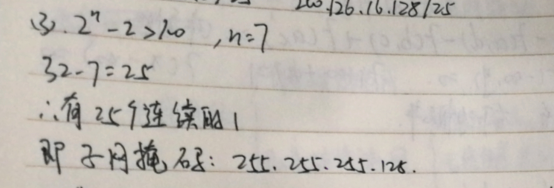 200.126.16.128/25
(3). 2ⁿ-2≥100 , n=7
32-7=25
∴有25个连续的1
即 子网掩码: 255.255.255.128.